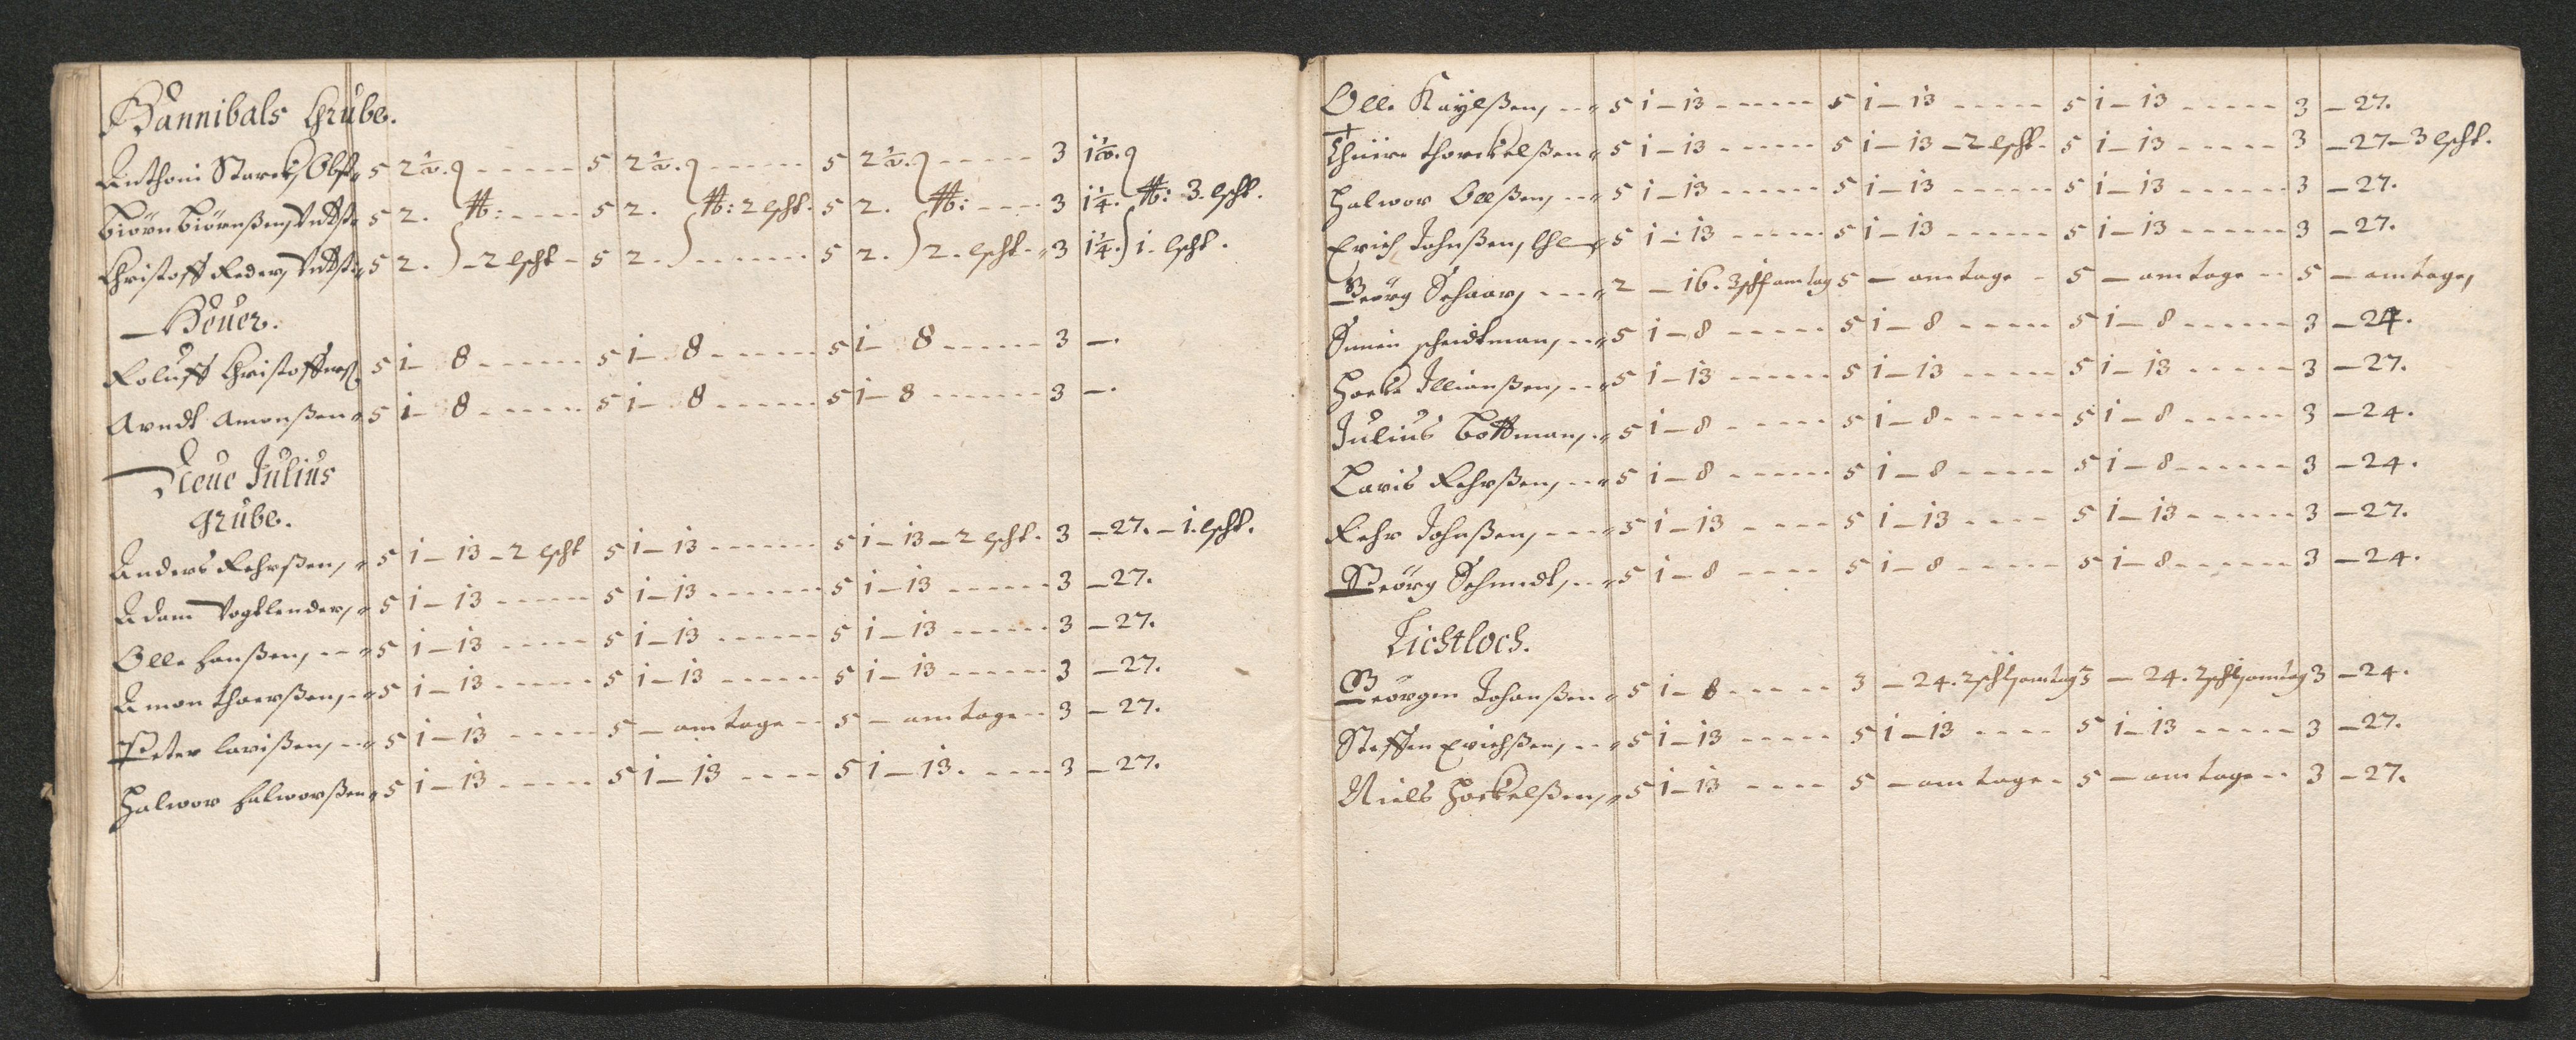 Hannibals Grube.
Anthoni Starck, Obst. 5 2½. ----- 5 2½. ----- 5 2½. ----- 3 1½.
Biörn Biörnßen, Vndtst. 5 2. ℔: ---- 5 2. ℔: 2 lcht. 5 2. ℔: ---- 3 1¼. ℔: 3. lcht.
Christoff Reder, Vndtst. 5 2. - 2 lcht - 5 2. ------ 5 2. 2. lcht. 3 1¼. 1. lcht.
Heuer.
Roluff Christoffers. 5 1 - 8 ----- 5 1 - 8 ----- 5 1 - 8 ------ 3 -.
Arndt Amonßen 5 1 - 8 ----- 5 1 - 8 ------ 5 1 - 8 ------ 3 -.
Neue Julius
grube.
Anders Rehrßen, 5 1 - 13 - 2 lcht 5 1 - 13 ------ 5 1 - 13 - 2 lcht. 3 - 27. - 1. lcht.
Adam Vogtlender, 5 1 - 13 ----- 5 1 - 13 ------ 5 1 - 13 ----- 3 - 27.
Olle Hanßen, 5 1 - 13 ----- 5 1 - 13 ------ 5 1 - 13 ----- 3 - 27.
Amon Thorßen, 5 1 - 13 ----- 5 1 - 13 ------ 5 1 - 13 ----- 3 - 27.
Peter Larißen, 5 1 - 13 ----- 5 - am tage -- 5 - am tage -- 3 - 27.
Halwor Halworßen 5 1 - 13 ----- 5 1 - 13 ---- 5 1 - 13. ---- 3 - 27.
Olle Kaÿlßen, 5 1 - 13 ------ 5 1 - 13 ----- 5 1 - 13 ----- 3 - 27.
Thuire Thorckelßen 5 1 - 13 ----- 5 1 - 13 - 2 lcht. 5 1 - 13 ----- 3 - 27 - 3 lcht.
Halwor Ollßen, 5 1 - 13 ----- 5 1 - 13 ----- 5 1 - 13 ------ 3 - 27.
Erich Johnßen, 5 1 - 13 ----- 5 1 - 13 ----- 5 1 - 13 ------ 3 - 27.
Georg Schaar, 2 - 16. am tag 5 - am tage - 5 - am tage -- 5 - am tage,
Simen scheidtman, 5 1 - 8 ----- 5 1 - 8 ----- 5 1 - 8 ------ 3 - 24.
Illianßen, 5 1 - 13 ----- 5 1 - 13 ----- 5 1 - 13 ----- 3 - 27.
Julius Bottman, 5 1 - 8 ----- 5 1 - 8 ----- 5 1 - 8 ----- 3 - 24.
Laris Rehrßen, 5 1 - 8 ----- 5 1 - 8 ----- 5 1 - 8 ----- 3 - 24.
Rehr Johnßen, 5 1 - 13 ---- 5 1 - 13 ---- 5 1 - 13 ----- 3 - 27.
Georg Schmidt, 5 1 - 8 ---- 5 1 - 8 ----- 5 1 - 8 ------ 3 - 24.
Lichtloch.
Geörgen Johanßen 5 1 - 8 ----- 3 - 24. 2 am tag 3 - 24. 2 am tag 3 - 24.
Steffen Erichßen, 5 1 - 13 ----- 5 1 - 13 ---- 5 1 - 13 ----- 3 - 27.
Niels Hoekelßen, 5 1 - 13 ---- 5 - am tage - 5 - am tage -- 3 - 27.